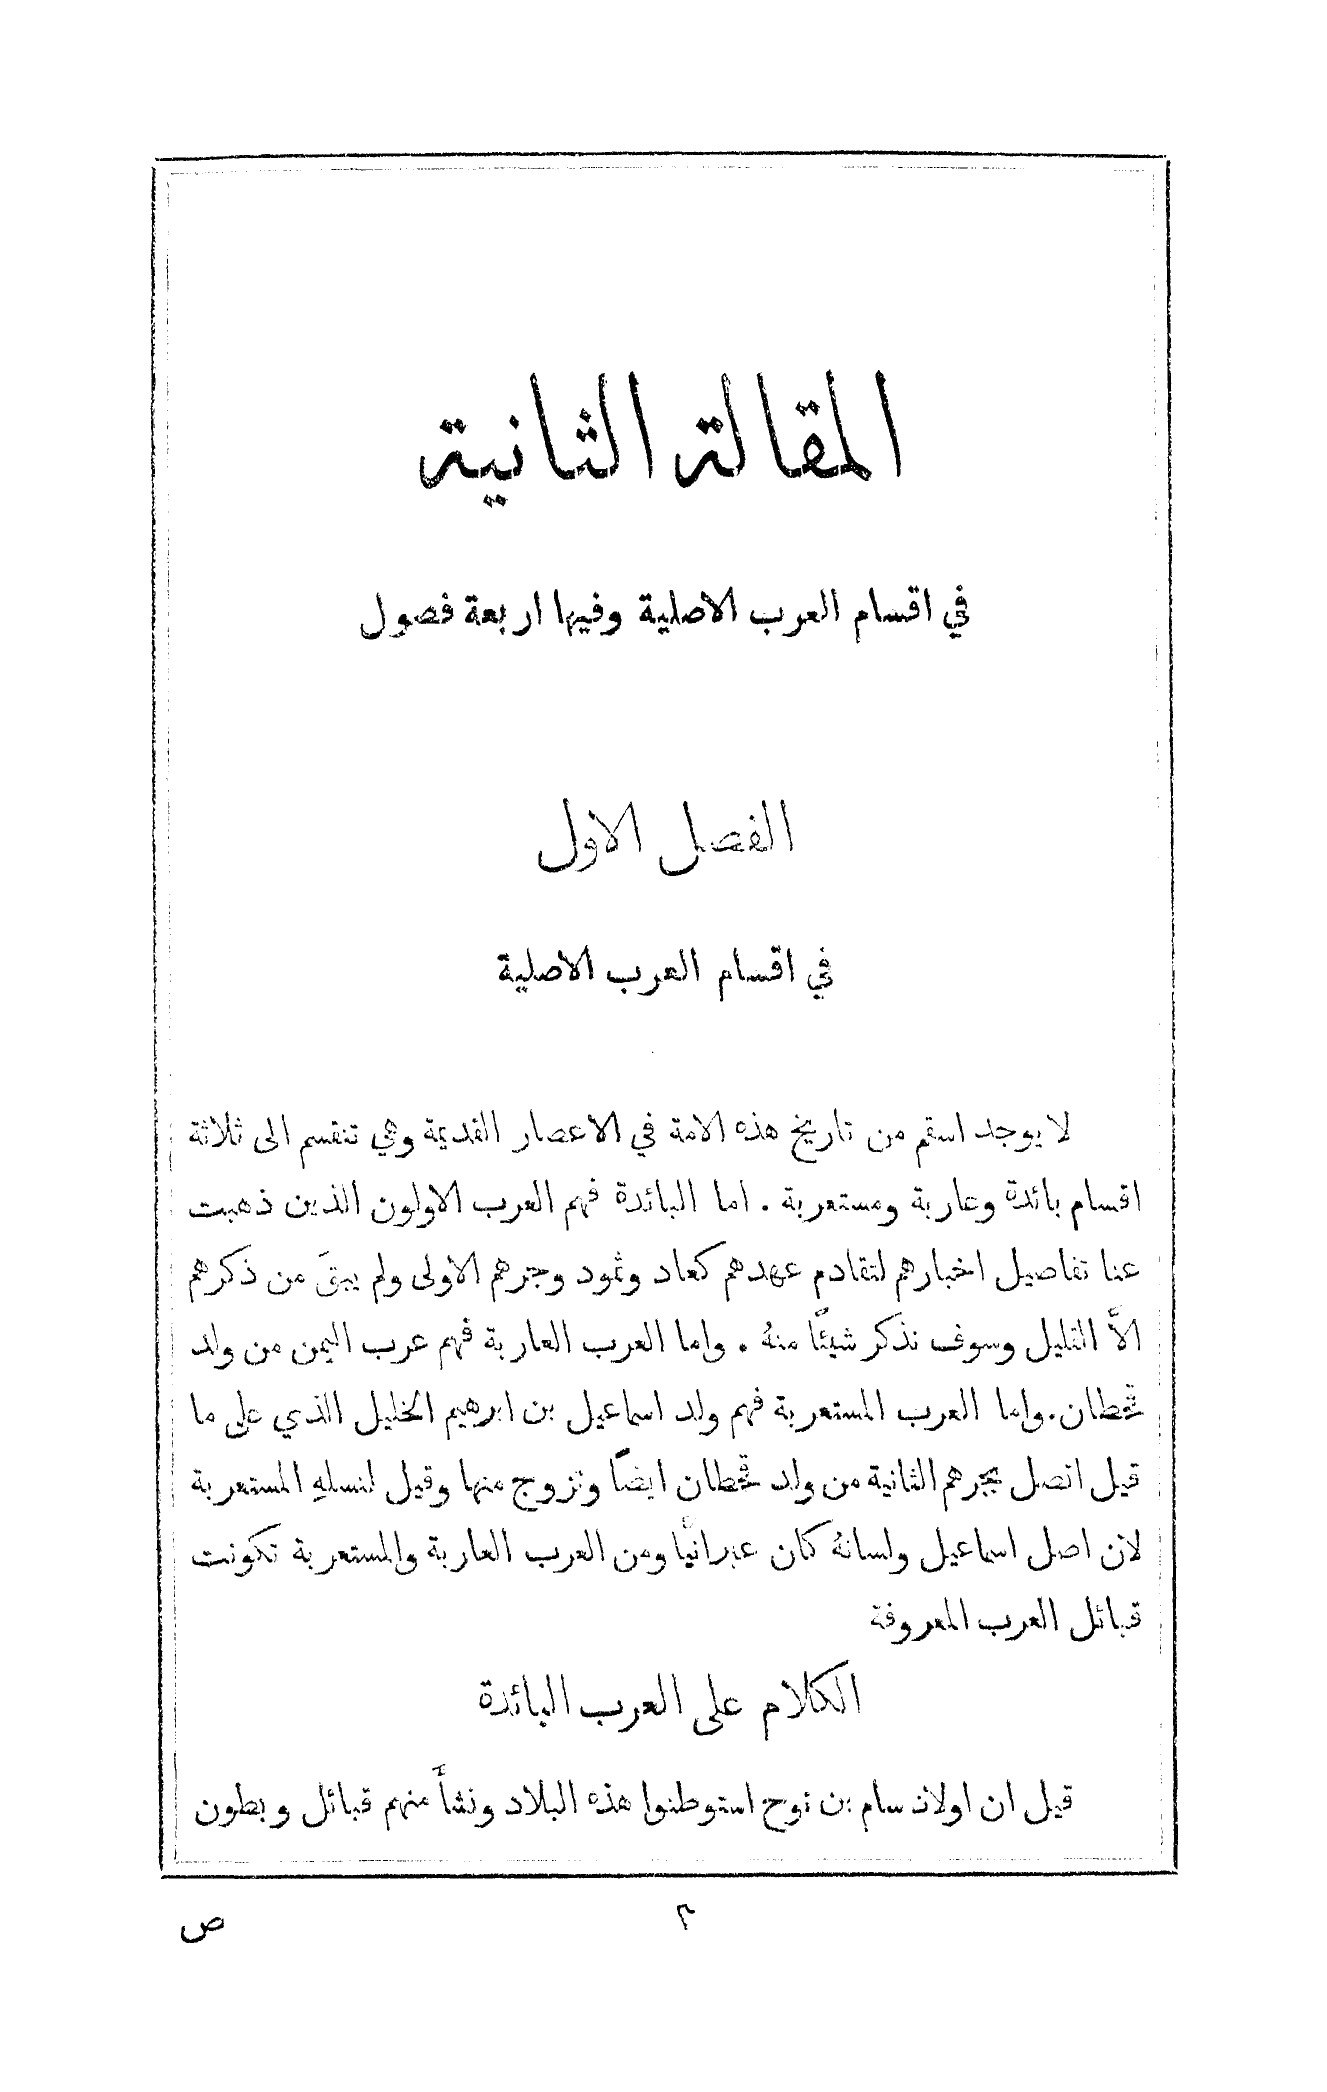 المقالة الثانية
في اقسام العرب الاصلية وفيها اربعة فصول
الفصل الاول
في اقسام العرب الاصلية
لا يوجد اسقم من تاريخ هذه الامة في الاعصار القديمة وهي تنقسم الى ثلاثة
اقسام بائدة وعاربة ومستعربة . اما البائدة فهم العرب الاولون الذين ذهبت
عنا تفاصيل اخبارهم لتقادم عهدهم كعاد وثمود وجرهم الاولى ولم يبقَ من ذكرهم
الاَّ القليل وسوف نذكر شيئًا منهُ . واما العرب العاربة فهم عرب اليمن من ولد
قحطان . واما العرب المستعربة فهم ولد اسماعيل بن ابرهيم الخليل الذي على ما
قيل اتصل بجرهم الثانية من ولد قحطان ايضًا وتزوج منها وقيل لنسلهِ المستعربة
لان اصل اسماعيل ولسانهُ كان عبرانيًّا ومن العرب العاربة والمستعربة تكونت
قبائل العرب المعروفة
الكلام على العرب البائدة
قيل ان اولاد سام بن نوح استوطنوا هذه البلاد ونشأَ منهم قبائل وبطون
٢ ص